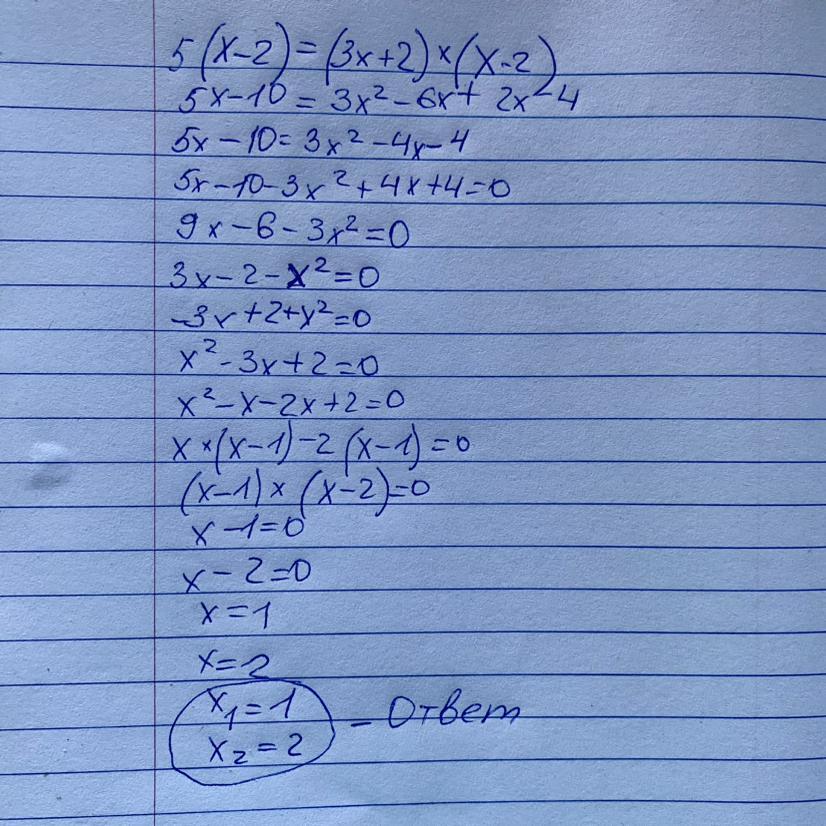 5(x-2)=(3x+2)×(x-2)
5x-10=3x²-6x+2x-4
5x-10=3x²-4x-4
5x-10-3x²+4x+4=0
9x-6-3x²=0
3x-2-x²=0
-3x+2+x²=0
x²-3x+2=0
x²-x-2x+2=0
x×(x-1)-2(x-1)=0
(x-1)×(x-2)=0
x-1=0
x-2=0
x=1
x=2
x₁=1
x₂=2 - Ответ